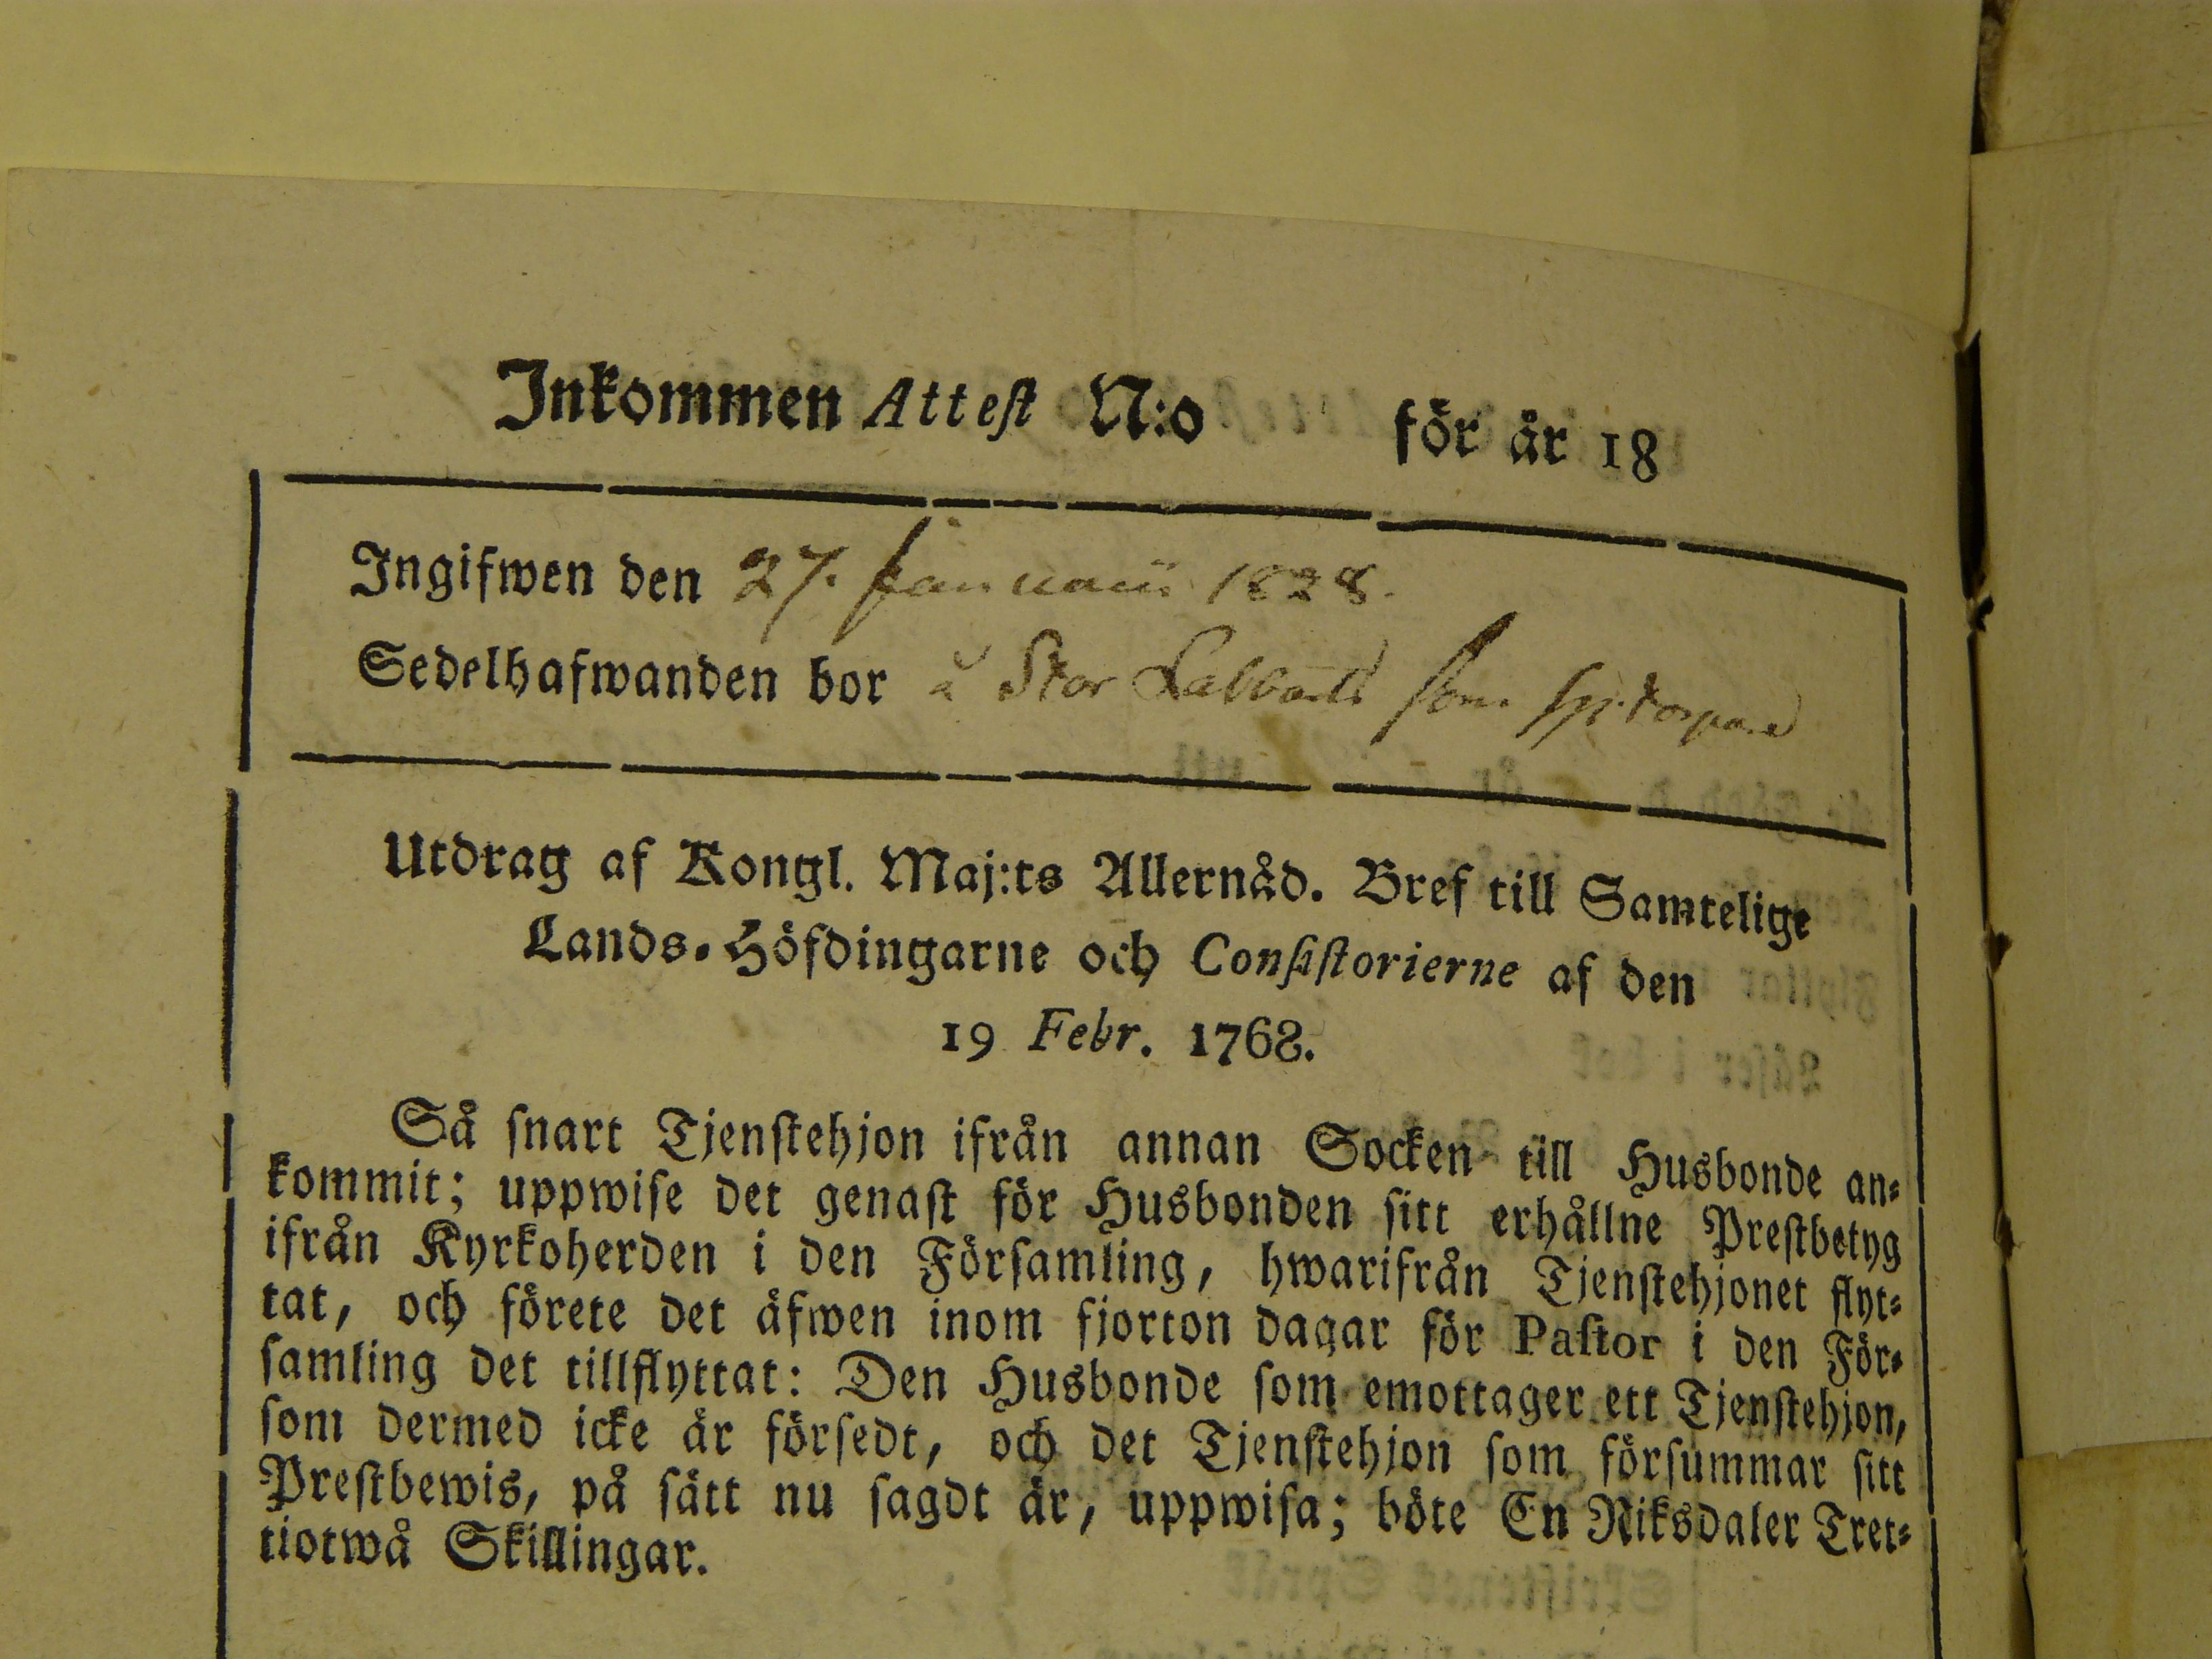 Inkommen Attest N:o för år 18
Ingifwen den 27. Januarii 1828.
Sedelhafwanden bor å Stor Labbarts som spitorpare
Utdrag af Kongl. Maj:ts Allernåd. Bref till Samtelige
Lands-Höfdingarne och Consistorierne af den
19 Febr. 1768.
Så snart Tjenstehjon ifrån annan Socken till Husbonde an-
kommit; uppwise det genast för Husbonden sitt erhållne Prestbetyg
ifrån Kyrkoherden i den Församling, hwarifrån Tjenstehjonet flyt-
tat, och förete det äfwen inom fjorton dagar för Pastor i den För-
samling det tillflyttat: Den Husbonde som emottager ett Tjenstehjon,
som dermed icke är försedt, och det Tjenstehjon som försummar sitt
Prestbewis, på sätt nu sagdt är, uppwisa; böte En Riksdaler Tret-
tiotwå Skillingar.